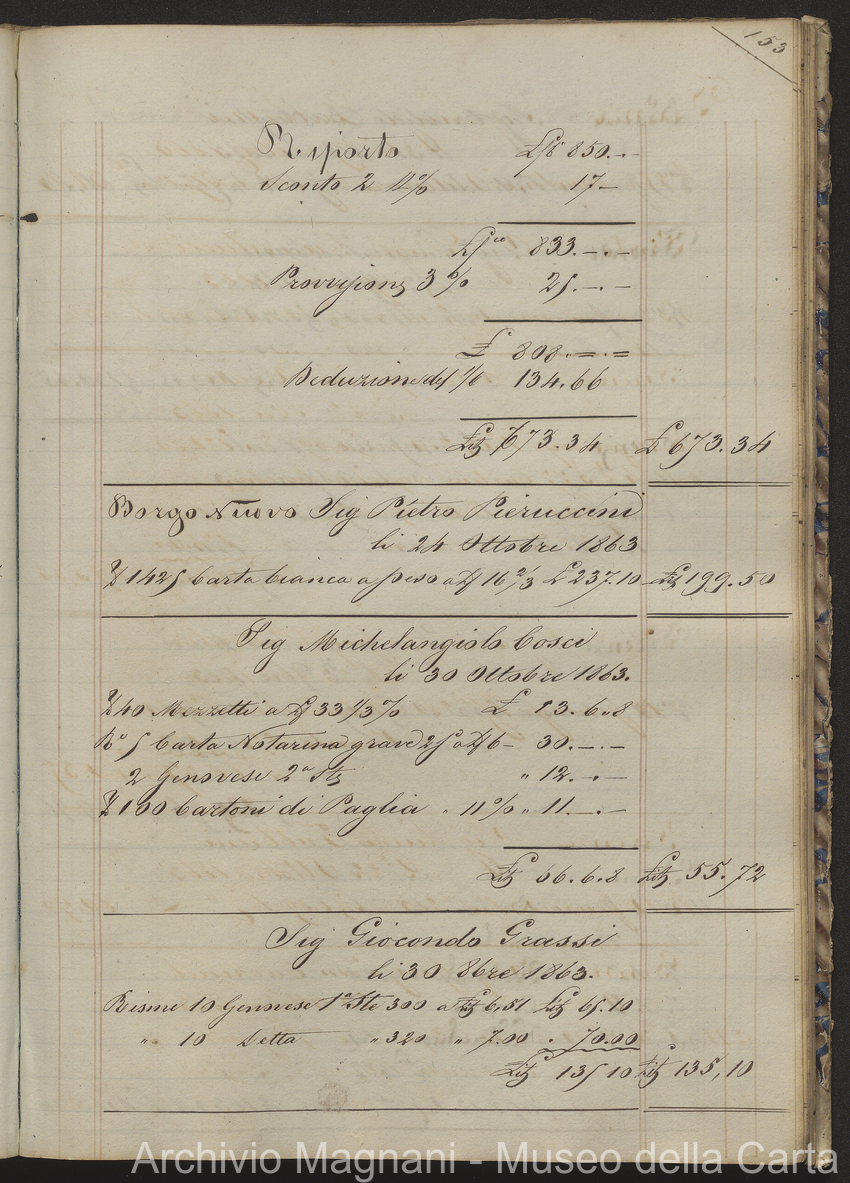 153
Riporto £ 850.-
Sconto 2 % 17-
£ 833.-.-
Provvisione 3 % 25.-.-
£ 808.=.=
Deduzione del % 134.66
£ 673.34 £ 673.34
Borgo Nuovo Sig Pietro Pieruccini
li 24 Ottobre 1863
1425 Carta bianca a peso a 16 2/3 £ 237.10 199.50
Sig Michelangiolo Cosci
li 30 Ottobre 1863.
40 Mezzetti a 33 1/3 % £ 13.6.8
5 Carta Notarina grave 25 a 6- 30.-.-
2 Genovese 2a " 12.-.-
100 Cartoni di Paglia " 11 % " 11.-.-
66.6.8 55.72
Sig Giocondo Grassi
li 30 8bre 1863.
Risme 10 Genovese 1a 300 a 6,51 65.10
" 10 Detta " 320 " 7.00 " 70.00
135 10 135,10
Archivio Magnani - Museo della Carta